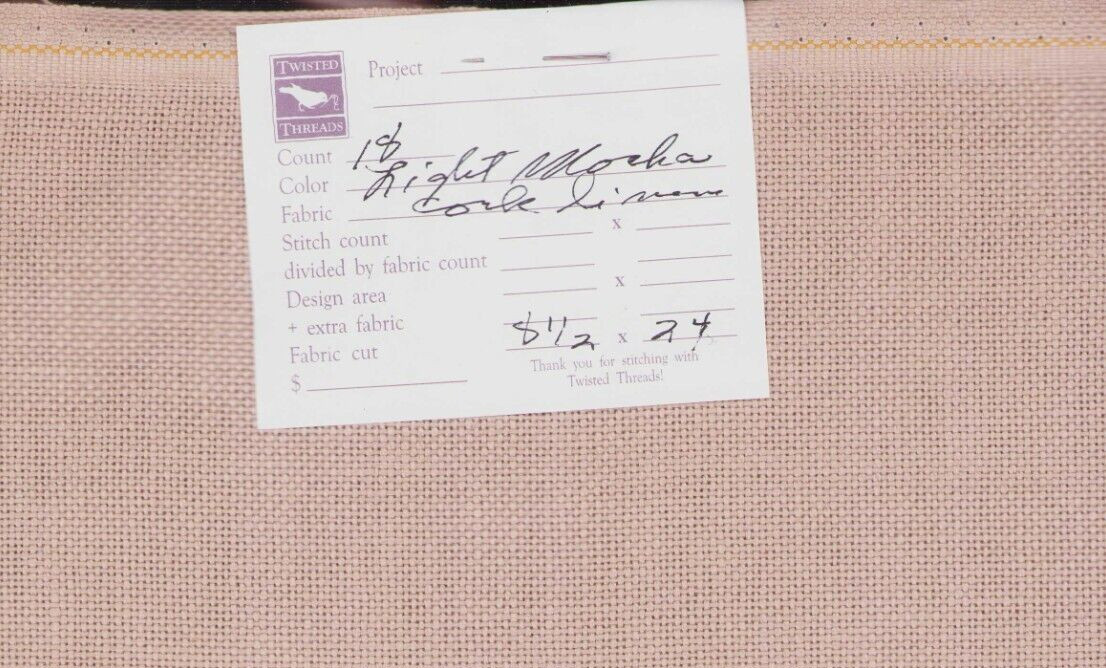 TWISTED
THREADS
Project
Count 18
Color Light Mocha
Fabric cork linen
Stitch count x
divided by fabric count
Design area x
+ extra fabric
Fabric cut 8 1/2 x 24
$
Thank you for stitching with
Twisted Threads!